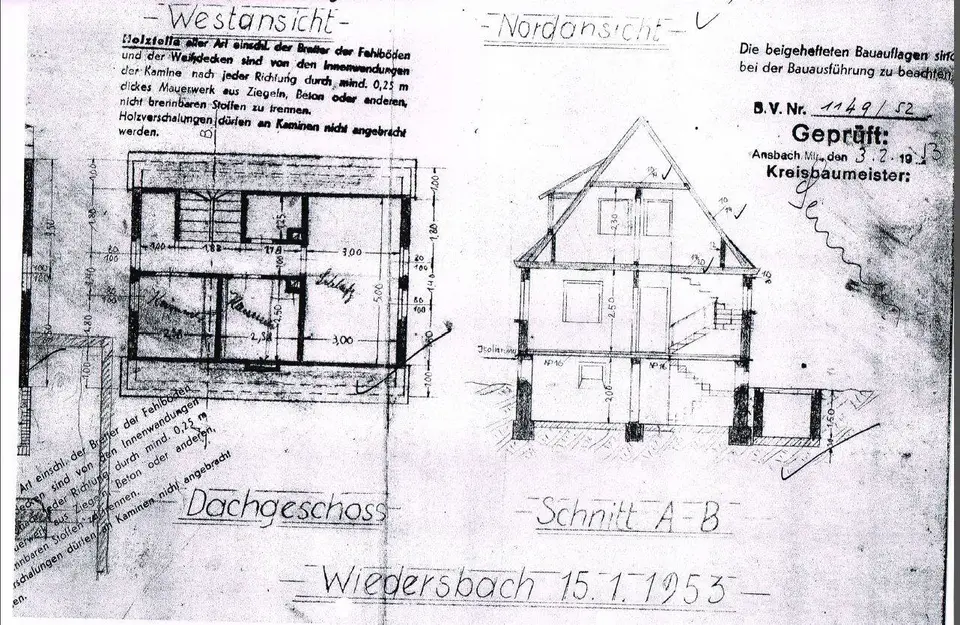 - Westansicht -
- Nordansicht -
Holzteile aller Art einschl. der Bretter der Fehlböden
und der Weißdecken sind von den Innenwandungen
der Kamine nach jeder Richtung durch mind. 0,25 m
dickes Mauerwerk aus Ziegeln, Beton oder anderen,
nicht brennbaren Stoffen zu trennen.
Holzverschalungen dürfen an Kaminen nicht angebracht
werden.
Die beigehefteten Bauauflagen sind
bei der Bauausführung zu beachten
B.V. Nr. 1149/52
Geprüft:
Ansbach Mfr., den 3.2.1953
Kreisbaumeister:
B
1,00
1,80
1,40
1,80
1,00
3,00
5,00
3,00
2,50
Kammer
Kammer
Schlafz
2,50
2,00
Isolierung
NP 16
NP 16
1,50
Art einschl. der Bretter der Fehlböden
decken sind von den Innenwandungen
jeder Richtung durch mind. 0,25 m
aus Ziegeln, Beton oder anderen,
brennbaren Stoffen zu trennen.
verschalungen dürfen an Kaminen nicht angebracht
en.
- Dachgeschoss -
- Schnitt A-B
- Wiedersbach 15.1.1953 -